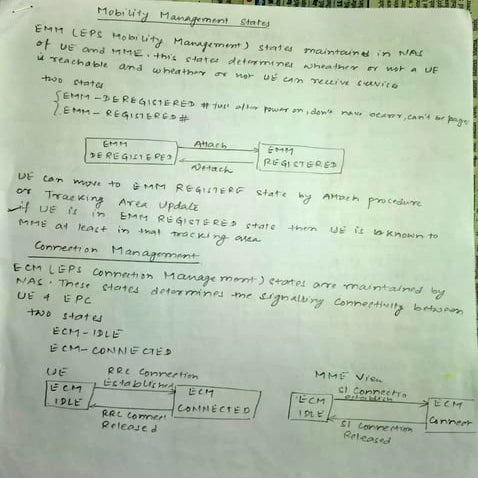 Mobility Management States
EMM (EPS Mobility Management) states maintained in NAS
of UE and MME. this states determines wheather or not a UE
is reachable and wheather or not UE can receive service
two states
EMM - DEREGISTERED # Just after power on, don't have bearer, can't be page
EMM - REGISTERED #
EMM DEREGISTERED
Attach
Detach
EMM REGISTERED
UE can move to EMM REGISTERE state by Attach procedure
or Tracking Area Update
if UE is in EMM REGISTERED state then UE is known to
MME at least in that tracking area
Connection Management
ECM (EPS Connection Management) states are maintained by
NAS. These states determines the signalling connectivity between
UE & EPC
two states
ECM-IDLE
ECM-CONNECTED
UE
RRC Connection
Established
ECM IDLE
ECM CONNECTED
RRC Connec
Released
MME View
S1 Connectio
establish
ECM IDLE
ECM Connect
S1 Connection
Released